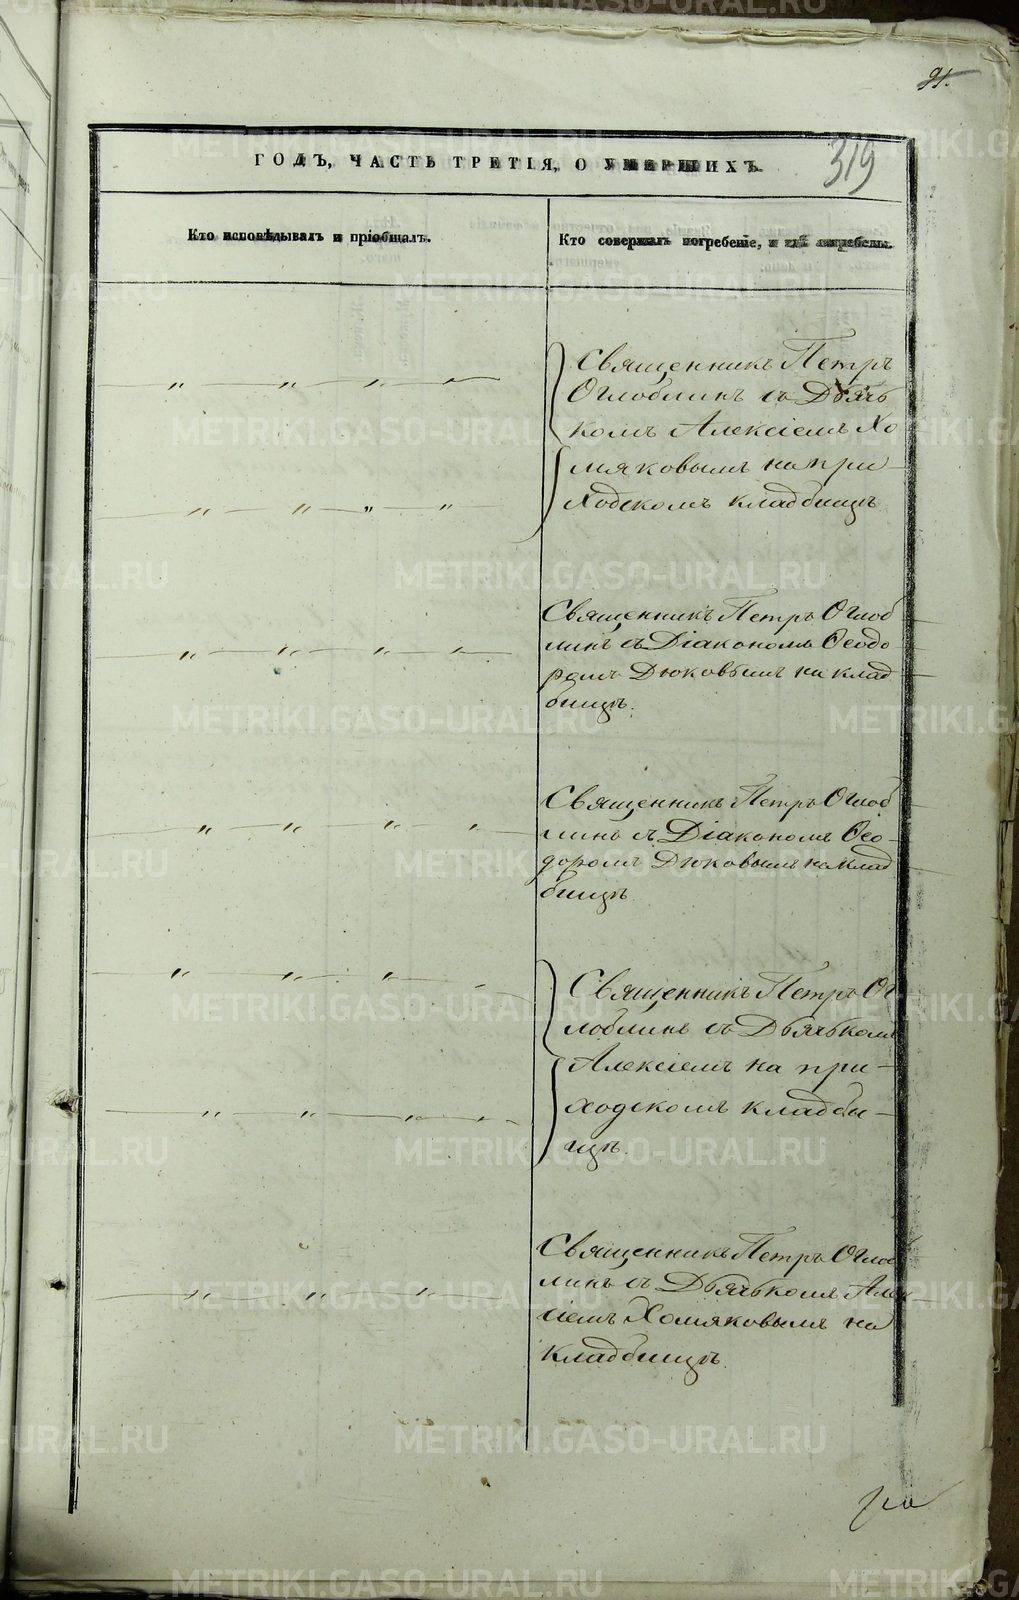 91.
ГОДЪ, ЧАСТЬ ТРЕТІЯ, О УМЕРШИХЪ.
319
Кто исповѣдывалъ и пріобщалъ.
Кто совершалъ погребеніе, и гдѣ погребены.
Священникъ Петръ
Оглоблинъ съ Дьячь
комъ Алексіемъ Хо
мяковымъ на при
ходскомъ кладбищѣ
Священникъ Петръ Оглоб
линъ съ Діакономъ Ѳеодо
ромъ Дюковымъ на клад
бищѣ.
Священникъ Петръ Оглоб
линъ съ Діакономъ Ѳео-
доромъ Дюковымъ на клад
бищѣ
Священникъ Петръ Ог
лоблинъ съ Дьячькомъ
Алексіемъ на при-
ходскомъ кладби-
щѣ.
Священникъ Петръ Оглоб
линъ съ Дьячькомъ Алек
сіемъ Хомяковымъ на
кладбищѣ.
METRIKI.GASO-URAL.RU